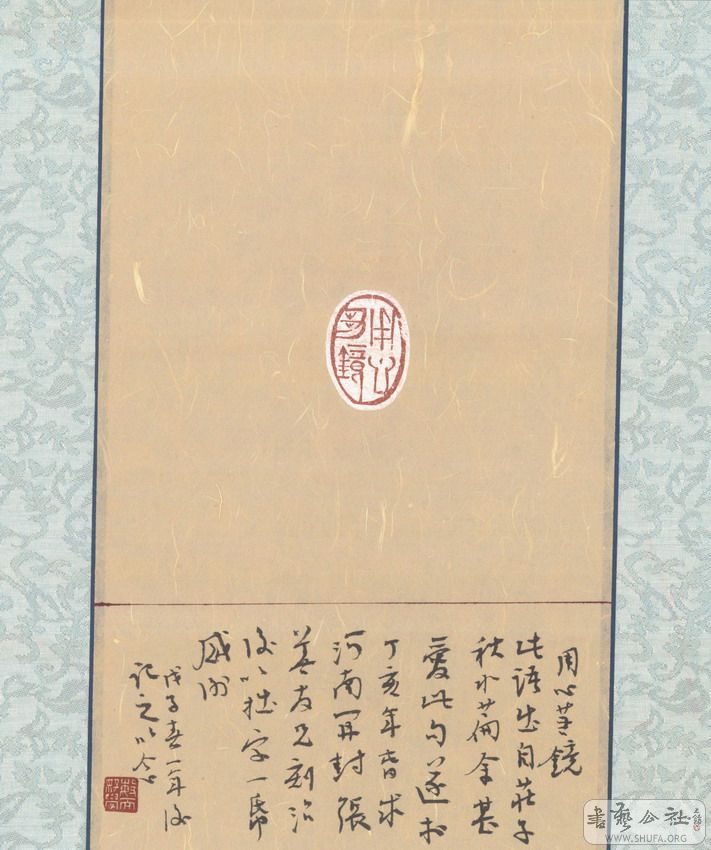 用心若鏡
用心若鏡
此語出自莊子
秋水篇余甚
愛此句遂於
丁亥年昔求
河南開封張
友兄刻治
後以拙字一帋
感謝
戊子春一年後
記之以念
書藝公社
WWW.SHUFA.ORG